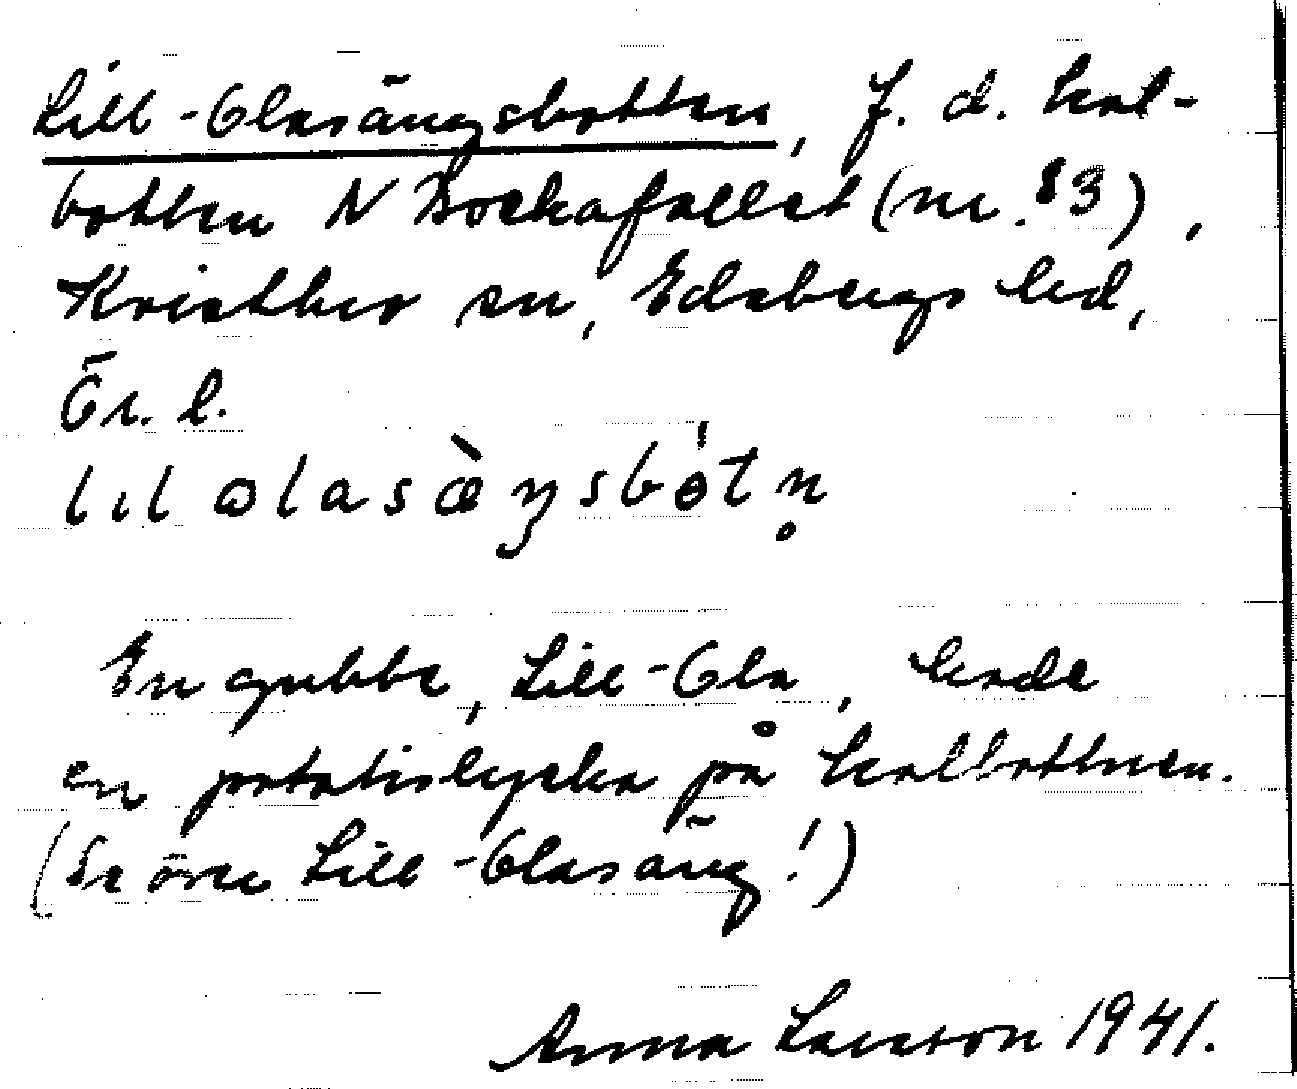 Lill-Olasängsbotten, f. d. kol-
botten N Bockafallet (nr. 83),
Kvistbro sn, Edsbergs hd,
Ör. l.
lıl ωlasæ̀ŋsbɵ́tn̥
En gubbe, Lill-Ola, hade
en potatislycka på kolbottnen.
(Se även Lill-Olasäng!)
Anna Larsson 1941.